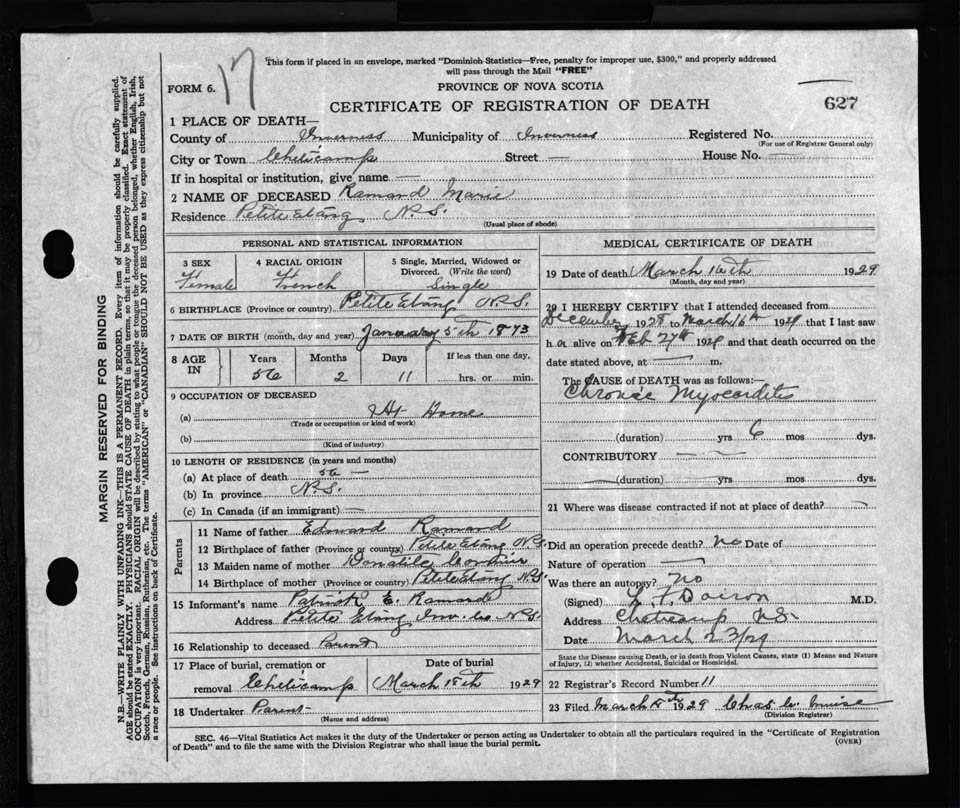 17
This form if placed in an envelope, marked "Dominion Statistics—Free, penalty for improper use, $300," and properly addressed
will pass through the Mail "FREE"
FORM 6.
PROVINCE OF NOVA SCOTIA
CERTIFICATE OF REGISTRATION OF DEATH
627
1 PLACE OF DEATH—
County of Inverness Municipality of Inverness Registered No.
(For use of Registrar General only)
City or Town Cheticamp Street — House No. —
If in hospital or institution, give name —
2 NAME OF DECEASED Ramard Marie
Residence Petite Etang N.S.
(Usual place of abode)
PERSONAL AND STATISTICAL INFORMATION
3 SEX 4 RACIAL ORIGIN 5 Single, Married, Widowed or
Divorced. (Write the word)
Female French Single
6 BIRTHPLACE (Province or country) Petite Etang N.S.
7 DATE OF BIRTH (month, day and year) January 5th 1873
8 AGE IN Years Months Days If less than one day,
56 2 11 hrs. or min.
9 OCCUPATION OF DECEASED
(a) At Home
(Trade or occupation or kind of work)
(b)
(Kind of industry)
10 LENGTH OF RESIDENCE (in years and months)
(a) At place of death 56 —
(b) In province N.S.
(c) In Canada (if an immigrant) —
Parents
11 Name of father Edward Ramard
12 Birthplace of father (Province or country) Petite Etang N.S.
13 Maiden name of mother
14 Birthplace of mother (Province or country) Petite Etang N.S.
15 Informant's name Patrick E. Ramard
Address Petite Etang Inv. Co N.S.
16 Relationship to deceased Parent
17 Place of burial, cremation or Date of burial
removal Cheticamp March 18th 1929
18 Undertaker Parent
(Name and address)
MEDICAL CERTIFICATE OF DEATH
19 Date of death March 16th 1929
(Month, day and year)
20 I HEREBY CERTIFY that I attended deceased from
December 1928 to March 16th 1929 that I last saw
h er alive on Feb 27th 1929 and that death occurred on the
date stated above, at — m.
The CAUSE of DEATH was as follows:—
Chronic Myocarditis
(duration) yrs 6 mos dys.
CONTRIBUTORY —
(duration) yrs mos dys.
21 Where was disease contracted if not at place of death? —
Did an operation precede death? No Date of
Nature of operation —
Was there an autopsy? No
(Signed) M.D.
Address Cheticamp N.S.
Date March 23/29
State the Disease causing Death, or in death from Violent Causes, state (1) Means and Nature
of Injury, (2) whether Accidental, Suicidal or Homicidal.
22 Registrar's Record Number 11
23 Filed March 1929 Chas
(Division Registrar)
SEC. 46—Vital Statistics Act makes it the duty of the Undertaker or person acting as Undertaker to obtain all the particulars required in the "Certificate of Registration
of Death" and to file the same with the Division Registrar who shall issue the burial permit.
(OVER)
MARGIN RESERVED FOR BINDING
N.B.—WRITE PLAINLY WITH UNFADING INK—THIS IS A PERMANENT RECORD. Every item of information should be carefully supplied.
AGE should be stated EXACTLY. PHYSICIANS should STATE CAUSE OF DEATH in plain terms, so that it may be properly classified. Exact statement of
OCCUPATION is very important. RACIAL ORIGIN will be described by stating to what people or tongue the deceased person belonged, whether English, Irish,
Scotch, French, German, Russian, Ruthenian, etc. The terms "AMERICAN" or "CANADIAN" SHOULD NOT BE USED as they express citizenship but not
a race or people. See instructions on back of Certificate.